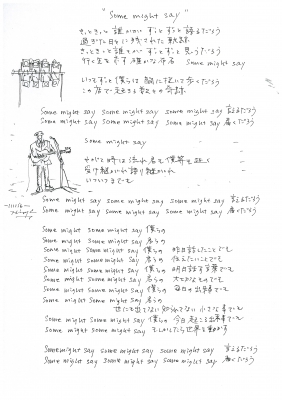 "Some might say"
きっときっと 誰かが ずっとずっと 語るだろう
過ぎた日々に残された軌跡
きっときっと 誰もが ずっとずっと 思うだろう
Some might say
いつもずっと僕らは 胸に抱いて歩くだろう
この店で
Some might say some might say some might say 言えるだろう
Some might say some might say some might say 届くだろう
Some might say
やがて時は流れ
受け継がれ 語り継がれ
いついつまでも
Some might say some might say some might say 言えるだろう
Some might say some might say some might say 届くだろう
Some might say Some might say 僕らの
Some might Some might say 君らの
Some might say Some might say 僕らの 昨日話したことでも
Some might say Some might say 君らの 伝えたいことでも
Some might say Some might say 僕らの 明日話す言葉でも
Some might say Some might say 君らの 大それたものでも
Some might say Some might say 僕らの 毎日の出来事でも
Some might Some might say 君らの
世にも出てない 知られてない 小さな事でも
Some might Some might say 僕らの 今日起こる出来事でも
Some might Some might say もしかしたら世界を動かす
Some might say some might say some might say 言えるだろう
Some might say some might say some might say 届くだろう